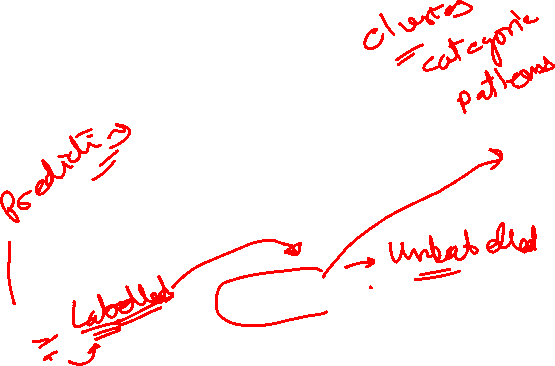 clusters
categoric
patterns
Predicti
Labelled
Unlabelled